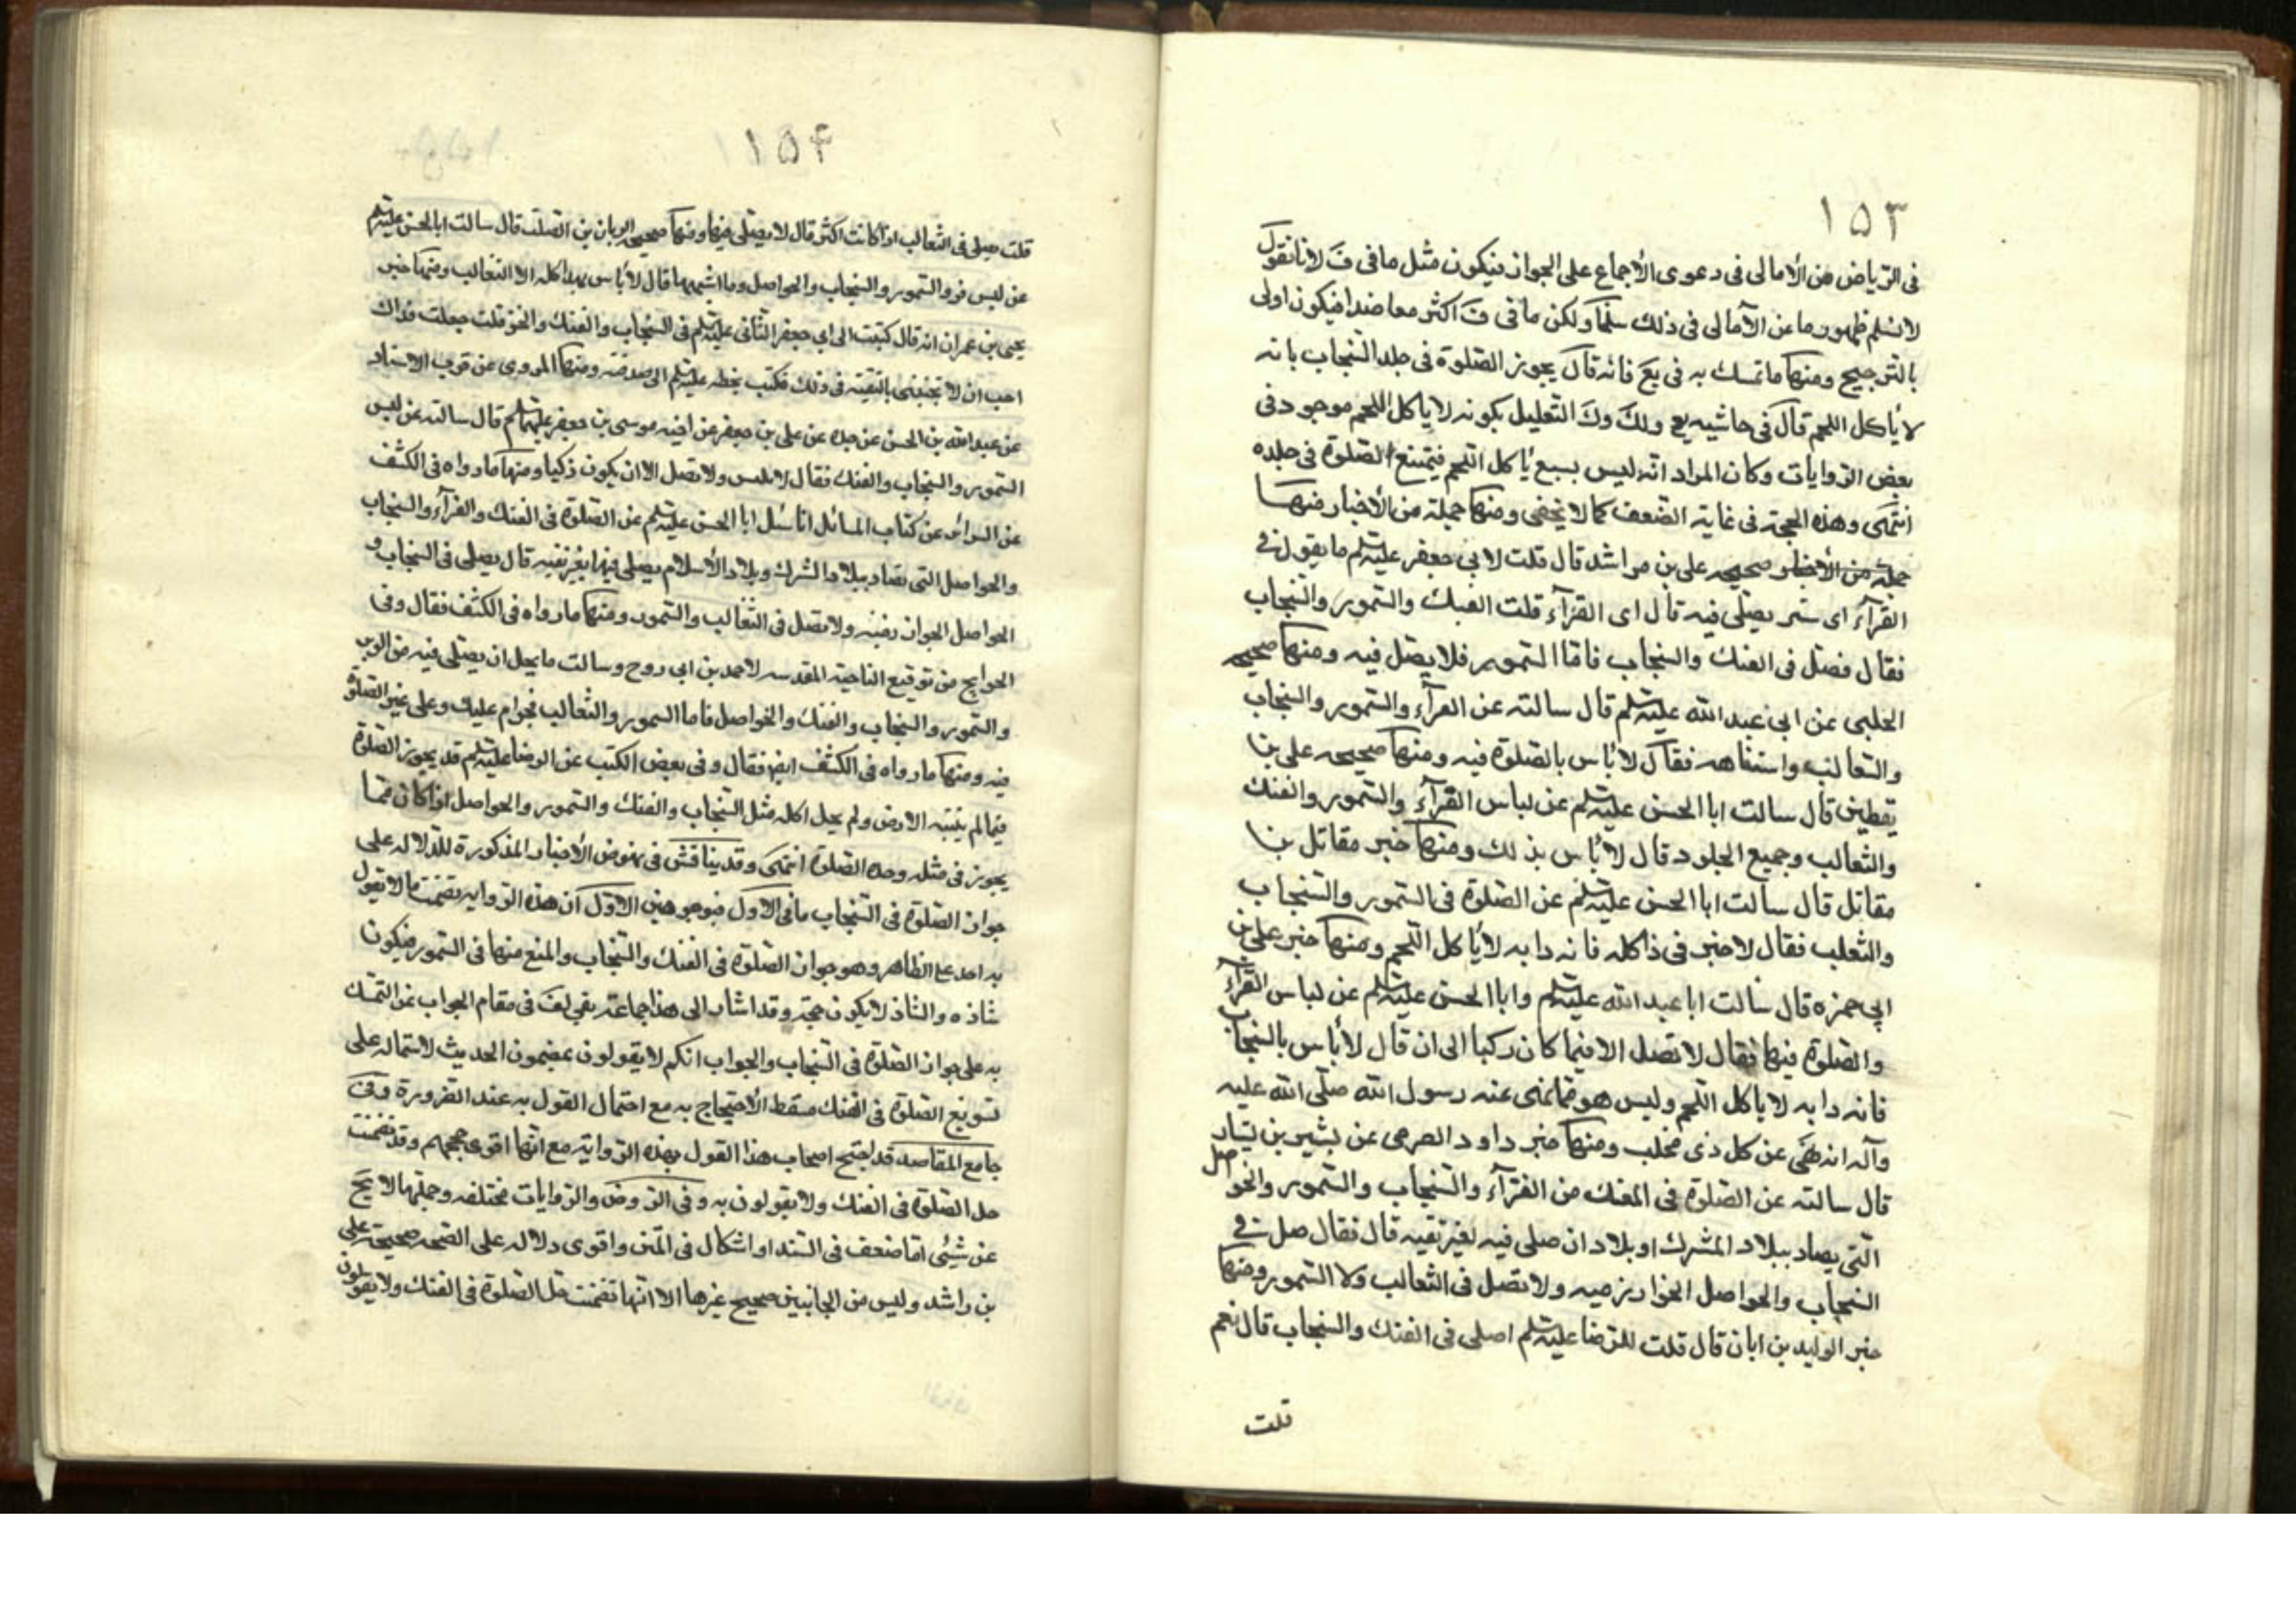 ١٥٣
فى الرياض من الأمالى فى دعوى الأجماع على الجواز فيكون مثل ما فى ف لانا نقول
لا نسلم ظهور ما عن الآمالى فى ذلك سلمنا ولكن ما فى ف اكثر معاضدا فيكون اولى
بالترجيح ومنها ما تمسك به فى يع فانه قال يجوز الصلوة فى جلد السنجاب بانه
لا يأكل اللحم قال فى حاشيه يع ولك وك التعليل بكونه لا يأكل اللحم موجود فى
بعض الروايات وكان المراد انه ليس بسبع يأكل اللحم فيمتنع الصلوة فى جلده
انتهى وهذه الحجة فى غاية الضعف كما لا يخفى ومنها جملة من الأخبار منها
جملة من الأخبار صحيحه على بن مراشد قال قلت لابى جعفر عليه السلم ما يقول فى
الفرآء اى شىء يصلى فيه قال اى الفرآء قلت الفنك والسمور والسنجاب
فقال فصل فى الفنك والسنجاب فاما السمور فلا يصل فيه ومنها صحيحه
الحلبى عن ابى عبد الله عليه السلم قال سالته عن الفرآء والسمور والسنجاب
والثعالب واشتباهه فقال لا بأس بالصلوة فيه ومنها صحيحه على بن
يقطين قال سالت ابا الحسن عليه السلم عن لباس الفرآء والسمور والفنك
والثعالب وجميع الجلود قال لا بأس بذلك ومنها خبر مقاتل بن
مقاتل قال سالت ابا الحسن عليه السلم عن الصلوة فى السمور والسنجاب
والثعلب فقال لا خير فى ذا كله فانه دابه لا يأكل اللحم ومنها خبر على بن
ابى حمزه قال سالت ابا عبد الله عليه السلم وابا الحسن عليه السلم عن لباس الفرآء
والصلوة فيها فقال لا تصل الا فيما كان زكيا الى ان قال لا بأس بالسنجاب
فانه دابه لا يأكل اللحم وليس هو مما نهى عنه رسول الله صلى الله عليه
وآله انه نهى عن كل ذى مخلب ومنها خبر داود الصرمى عن بشير بن يسار
قال سالته عن الصلوة فى الفنك من الفرآء والسنجاب والسمور والحواصل
التى يصاد ببلاد الشرك او بلاد ان صلى فيه لغير تقيه قال فقال صل فى
السنجاب والحواصل الخوارزميه ولا تصل فى الثعالب ولا السمور ومنها
خبر الوليد بن ابان قال قلت للرضا عليه السلم اصلى فى الفنك والسنجاب قال نعم
قلت
١٥۴
قلت يصلى فى الثعالب اذا كانت اكثر قال لا يصلى فيها ومنها صحيح الريان بن الصلت قال سالت ابا الحسن عليه السلم
عن لبس فرو السمور والسنجاب والحواصل وما اشبهها قال لا بأس بهذا كله الا الثعالب ومنها خبر
يحيى بن عمران انه قال كتبت الى ابى جعفر الثانى عليه السلم فى السنجاب والفنك والخز قلت جعلت فداك
احب ان لا تجيبنى بالتقيه فى ذلك فكتب بخطه عليه السلم الى صل فيه ومنها المروى عن قرب الاسناد
عن عبد الله بن الحسن عن جده عن على بن جعفر عن اخيه موسى بن جعفر عليهما السلم قال سالته عن لبس
السمور والسنجاب والفنك فقال لا يلبس ولا تصل الا ان يكون ذكيا ومنها ما رواه فى الكشف
عن السرائر عن كتاب المسائل انا سئل ابا الحسن عليه السلم عن الصلوة فى الفنك والفرآء والسنجاب
والحواصل التى تصاد ببلاد الشرك وبلاد الأسلام يصلى فيها بغير تقيه قال يصلى فى السنجاب و
الحواصل الخوارزميه ولا تصل فى الثعالب والسمور ومنها ما رواه فى الكشف فقال وفى
الخرايج من توقيع الناحية المقدسه لاحمد بن ابى روح وسالت ما يحل ان يصلى فيه من الوبر
والسمور والسنجاب والفنك والحواصل فاما السمور والثعالب فحرام عليك وعلى غيرك الصلوة
فيه ومنها ما رواه فى الكشف ايضا فقال وفى بعض الكتب عن الرضا عليه السلم قد يجوز الصلوة
فيما لم ينبته الارض ولم يحل اكله مثل السنجاب والفنك والسمور والحواصل اذا كان مما
يجوز فى مثله وحده الصلوة انتهى وقد يناقش فى نهوض الأخبار المذكورة للدلاله على
جواز الصلوة فى السنجاب ما فى الاول فبوجوهين الاول ان هذه الروايه تضمنت ما لا يقول
به احد على الظاهر وهو جواز الصلوة فى الفنك والسنجاب والمنع منها فى السمور فيكون
شاذه والشاذ لا يكون حجة وقد اشار الى هذا جماعة ففى لف فى مقام الجواب عن التمسك
به على جواز الصلوة فى السنجاب والجواب انكم لا يقولون بمضمون الحديث لاشتماله على
تسويغ الصلوة فى الفنك فسقط الأحتجاج به مع احتمال القول به عند الضرورة وفى
جامع المقاصد قد احتج اصحاب هذا القول بهذه الرواية مع انها اقوى حججهم وقد تضمنت
حل الصلوة فى الفنك ولا يقولون به وفى الروض والروايات مختلفه وجملتها لا يخ
عن شيئى اما ضعف فى السند او اشكال فى المتن واقوى دلاله على الصحه صحيحة على
بن راشد وليس من الجانبين صحيح غيرها الا انها تضمنت حل الصلوة فى الفنك ولا يقولون